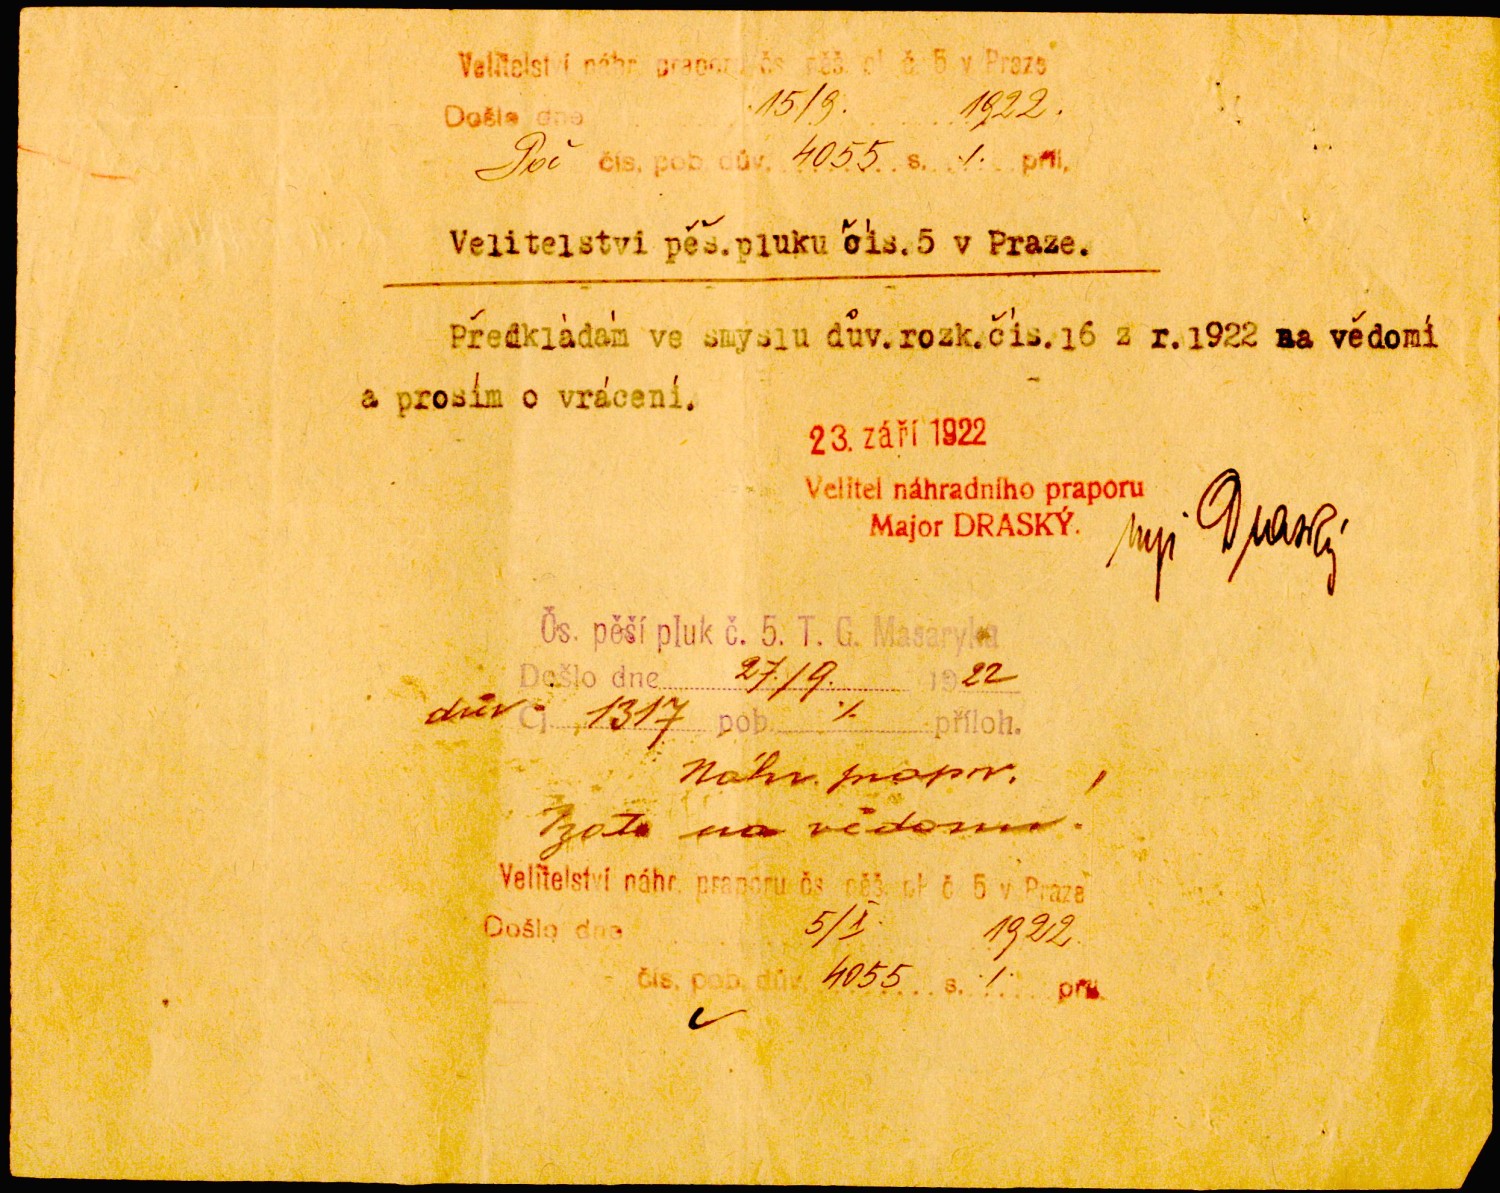 Velitelství náhr. praporu čs. pěš. pl. č. 5 v Praze
Došlo dne 15/9. 1922.
Poč čís. pob. dův. 4055 s. /. příl.
Velitelství pěš.pluku čís.5 v Praze.
Předkládám ve smyslu dův.rozk.čís.16 z r.1922 na vědomí
a prosím o vrácení.
23. září 1922
Velitel náhradního praporu
Major DRASKÝ.
mjr Draský
Čs. pěší pluk č. 5. T. G. Masaryka
Došlo dne 27./9. 1922
dův. Čj. 1317 pob. /. příloh.
Náhr. prapor.
na vědomí.
Velitelství náhr. praporu čs. pěš. pl. č. 5 v Praze
Došlo dne 5/X. 1922.
čís. pob. dův. 4055 s. /. příl.